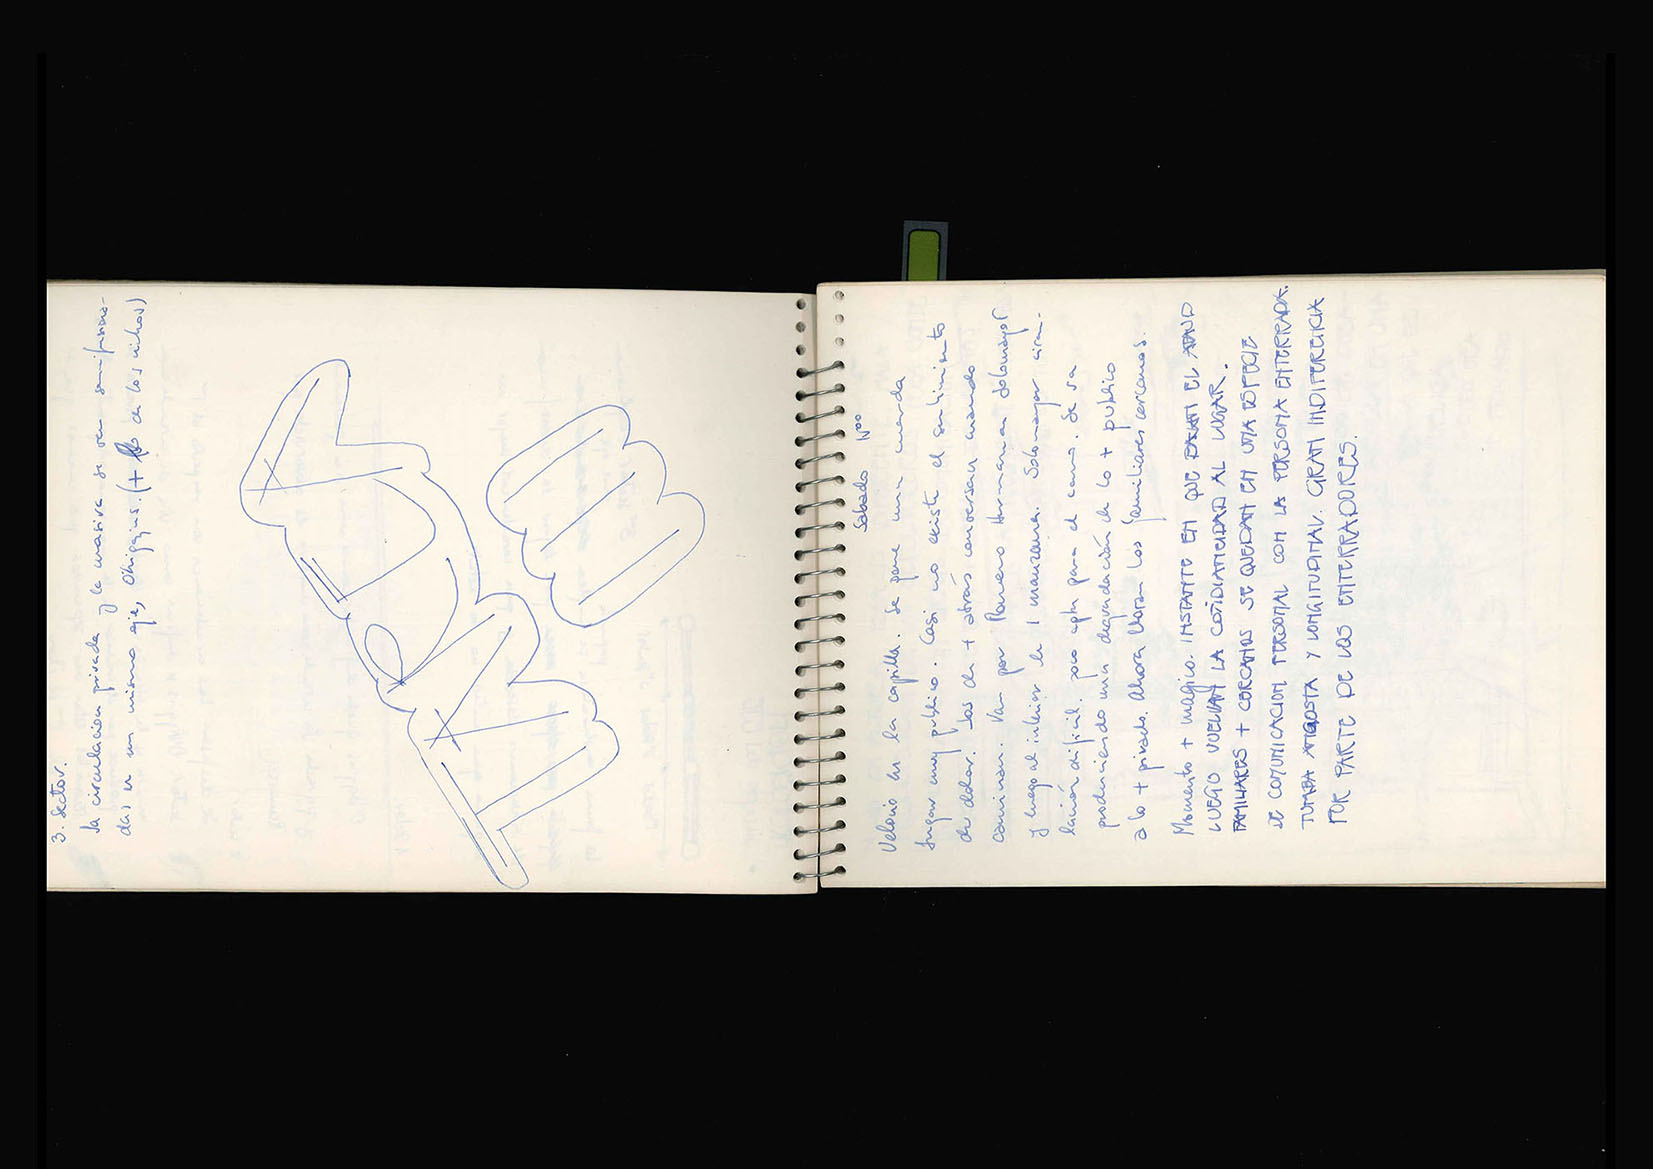 3. Sector.
La circulación privada y la masiva se ven semi fusiona-
das en un mismo eje, Ohiggins. (+ de los nichos)
Sabado
Velorio en la capilla. Se pone una cuerda
lugar muy publico. Casi no existe el sentimiento
de dolor. Los de + atrás conversan cuando
caminan. Van por Romero Hermanas Solomayor
y luego al interior de 1 manzana. Solomayor circu-
lación dificil. poco apta para el carro. Se va
produciendo una degradación de lo + publico
a lo + privado. Ahora lloran los familiares cercanos.
Momento + magico. INSTANTE EN QUE BAJAN EL ATAUD
LUEGO VUELVEN LA COTIDIANEIDAD AL LUGAR.
FAMILIARES + CERCANOS SE QUEDAN EN UNA ESPECIE
DE COMUNICACION PERSONAL CON LA PERSONA ENTERRADA.
TUMBA ANGOSTA Y LONGITUDINAL. GRAN INDIFERENCIA
POR PARTE DE LOS ENTERRADORES.